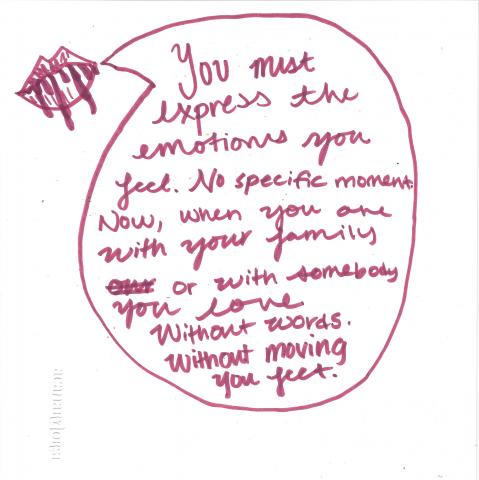 You must
express the
emotions you
feel. No specific moment.
Now, when you are
with your family
or with somebody
you love
Without words.
Without moving
you feet.